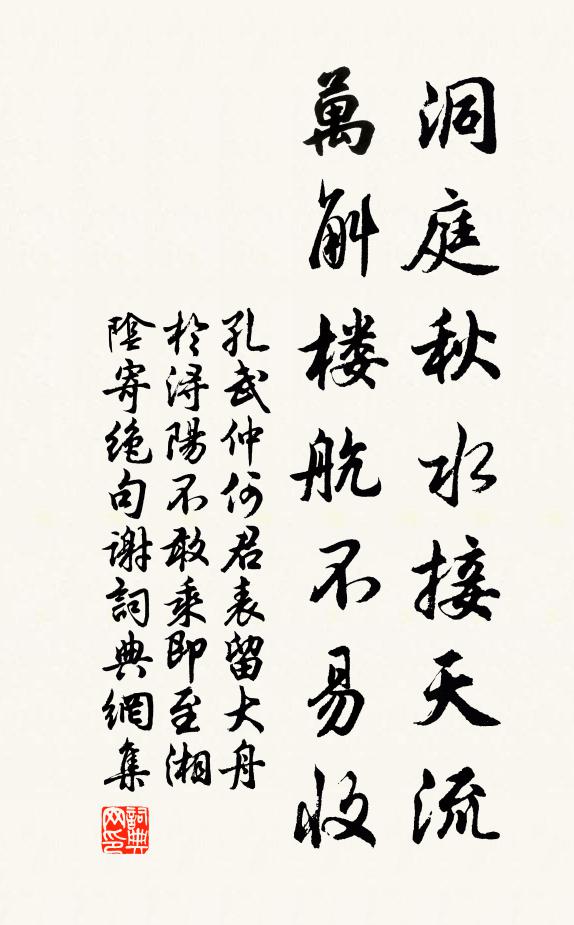 洞庭秋水接天流
萬斛楼航不易收
孔武仲何君表留大舟
於浔陽不敢乘即至湘
陰寄绝句謝詞典網集
詞典网印